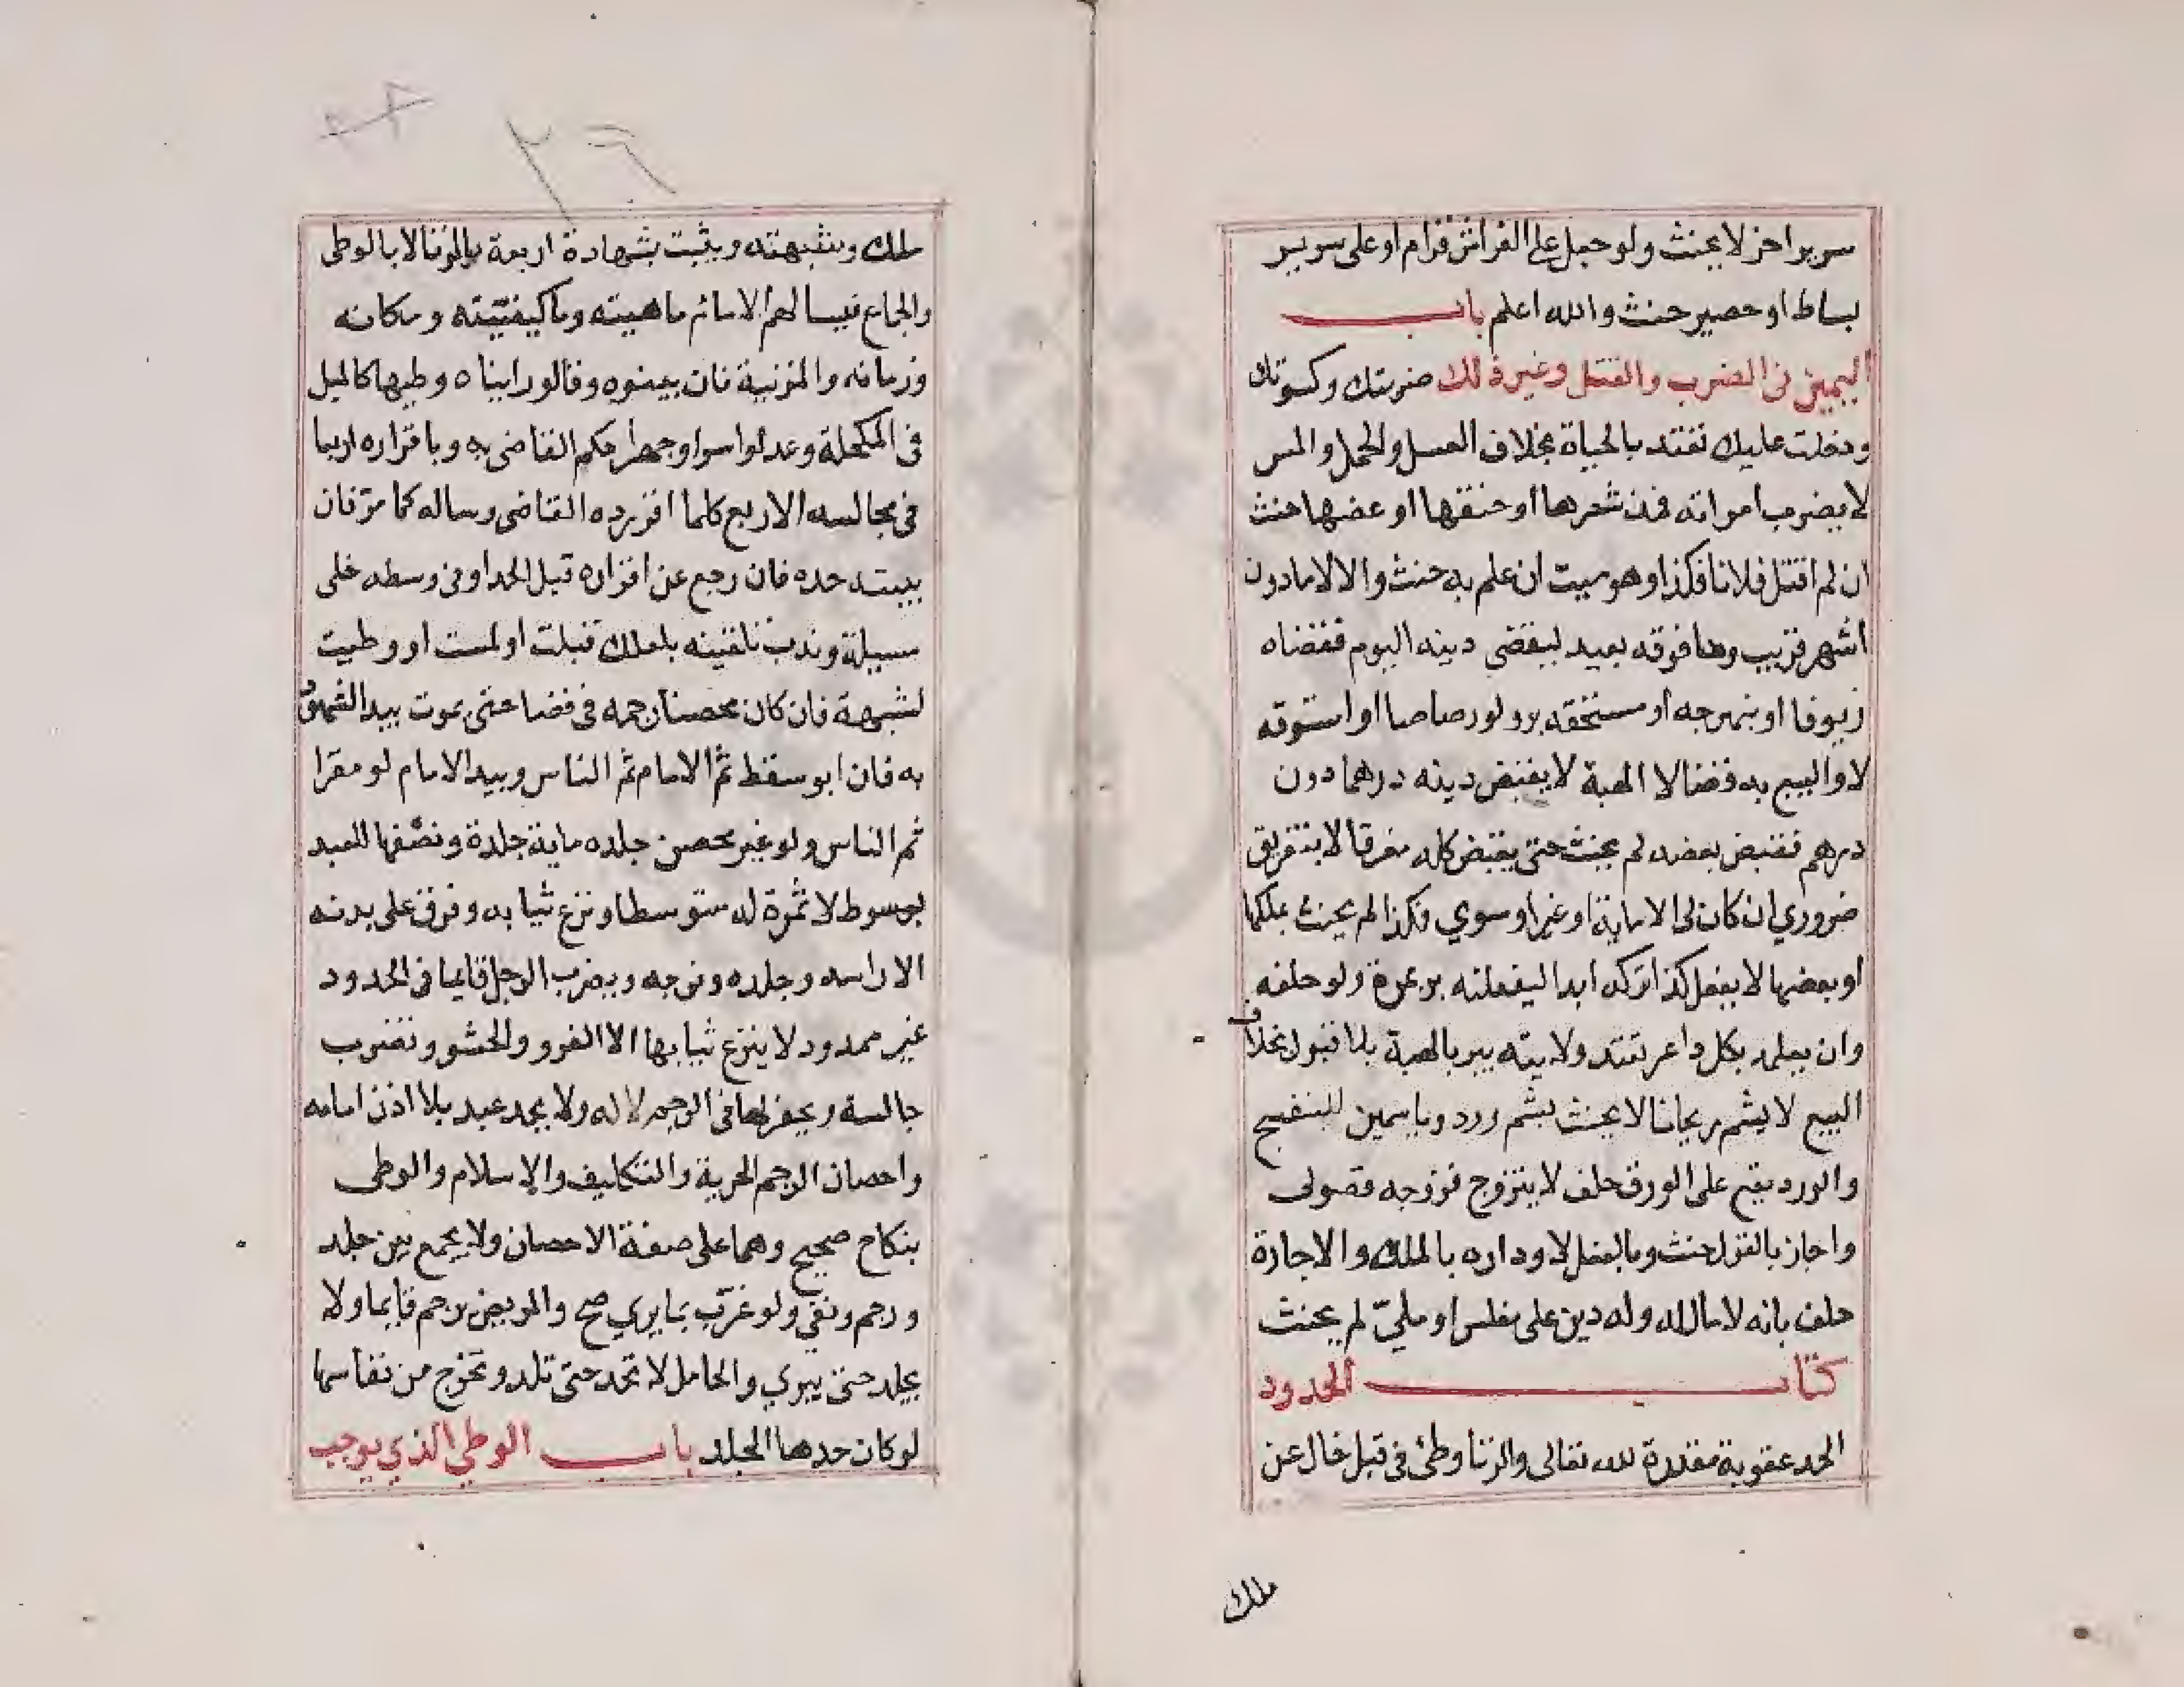 سريرا اخر لا يحنث ولو جعل على الفراش قرام او على سرير
بساط او حصير حنث والله اعلم باب
اليمين في الضرب والقتل وغير ذلك ضربتك وكسوتك
ودخلت عليك تقتد بالحياة بخلاف الغسل والحمل والمس
لا يضرب امراته فمد شعرها او خنقها او عضها حنث
ان لم اقتل فلانا فكذا وهو ميت ان علم به حنث والا لا مادون
اشهر قريب وما فوقه بعيد ليقضي دينه اليوم فقضاه
زيوفا او بنهرجه او مستحقه بر ولو رصاصا او استوقه
لا والبيع به قضا لا الهبة لا يقبض دينه درهما دون
درهم فقبض بعضه لم يحنث حتى يقبض كله مفرقا لا بتفريق
ضروري ان كان لي الا ماية او غير او سوي فكذا لم يحنث بملكها
او بعضها لا يفعل كذا تركه ابدا ليفعلنه بر بمرة ولو حلفه
وان يعلمه بكل داعر تقتد ولايته يبر بالهبة بلا قبول بخلاف
البيع لا يشم ريحانا لا يحنث بشم ورد وياسمين البنفسج
والورد يقع على الورق حلف لا يتزوج فزوجه فضولي
واجاز بالقول حنث وبالفعل لا وداره بالملك والاجارة
حلف بانه لا مال له وله دين على مفلس او ملي لم يحنث
كتاب الحدود
الحد عقوبة مقدرة لله تعالى والزنا وطئ في قبل خال عن
ملك
ملك وشبهته ويثبت بشهادة اربعة بالزنا لا بالوطى
والجماع فيسالهم الامام ماهيته وما كيفيته ومكانه
وزمانه والمزنية فان بينوه وقالو رايناه وطيها كالميل
في المكحلة وعدلوا سرا وجهرا حكم القاضي به وباقراره اربعا
في مجالسه الاربع كلما اقر رده القاضي وساله كما مر فان
بينه حده فان رجع عن اقراره قبل الحد او في وسطه خلي
سبيلة وندب تلقينه بلعلك قبلت او لمست او وطيت
لشبهة فان كان محصنا رجمه في فضا حتى يموت يبدا الشهود
به فان ابو سقط ثم الامام ثم الناس ويبدا الامام لو مقرا
ثم الناس ولو غير محصن جلده ماية جلدة ونصفها للعبد
بوسوط لا ثمرة له متوسطا ونزع ثيابه وفرق على بدنه
الا راسه وجلده وفرجه ويضرب الرجل قايما في الحدود
غير ممدود لا ينزع ثيابها الا الفرو والحشو وتضرب
جالسة ويحفر لها في الرجم لا له ولا يحد عبد بلا اذن امامه
واحصان الرجم الحرية والتكليف والاسلام والوطى
بنكاح صحيح وهما على صفة الاحصان ولا يجمع بين جلد
ورجم ونفي ولو غرب بما يري صح والمريض يرجم قايما ولا
يجلد حتى يبري والحامل لا تحد حتى تلد وتخرج من نفاسها
لو كان حدها الجلد باب الوطي الذي يوجب